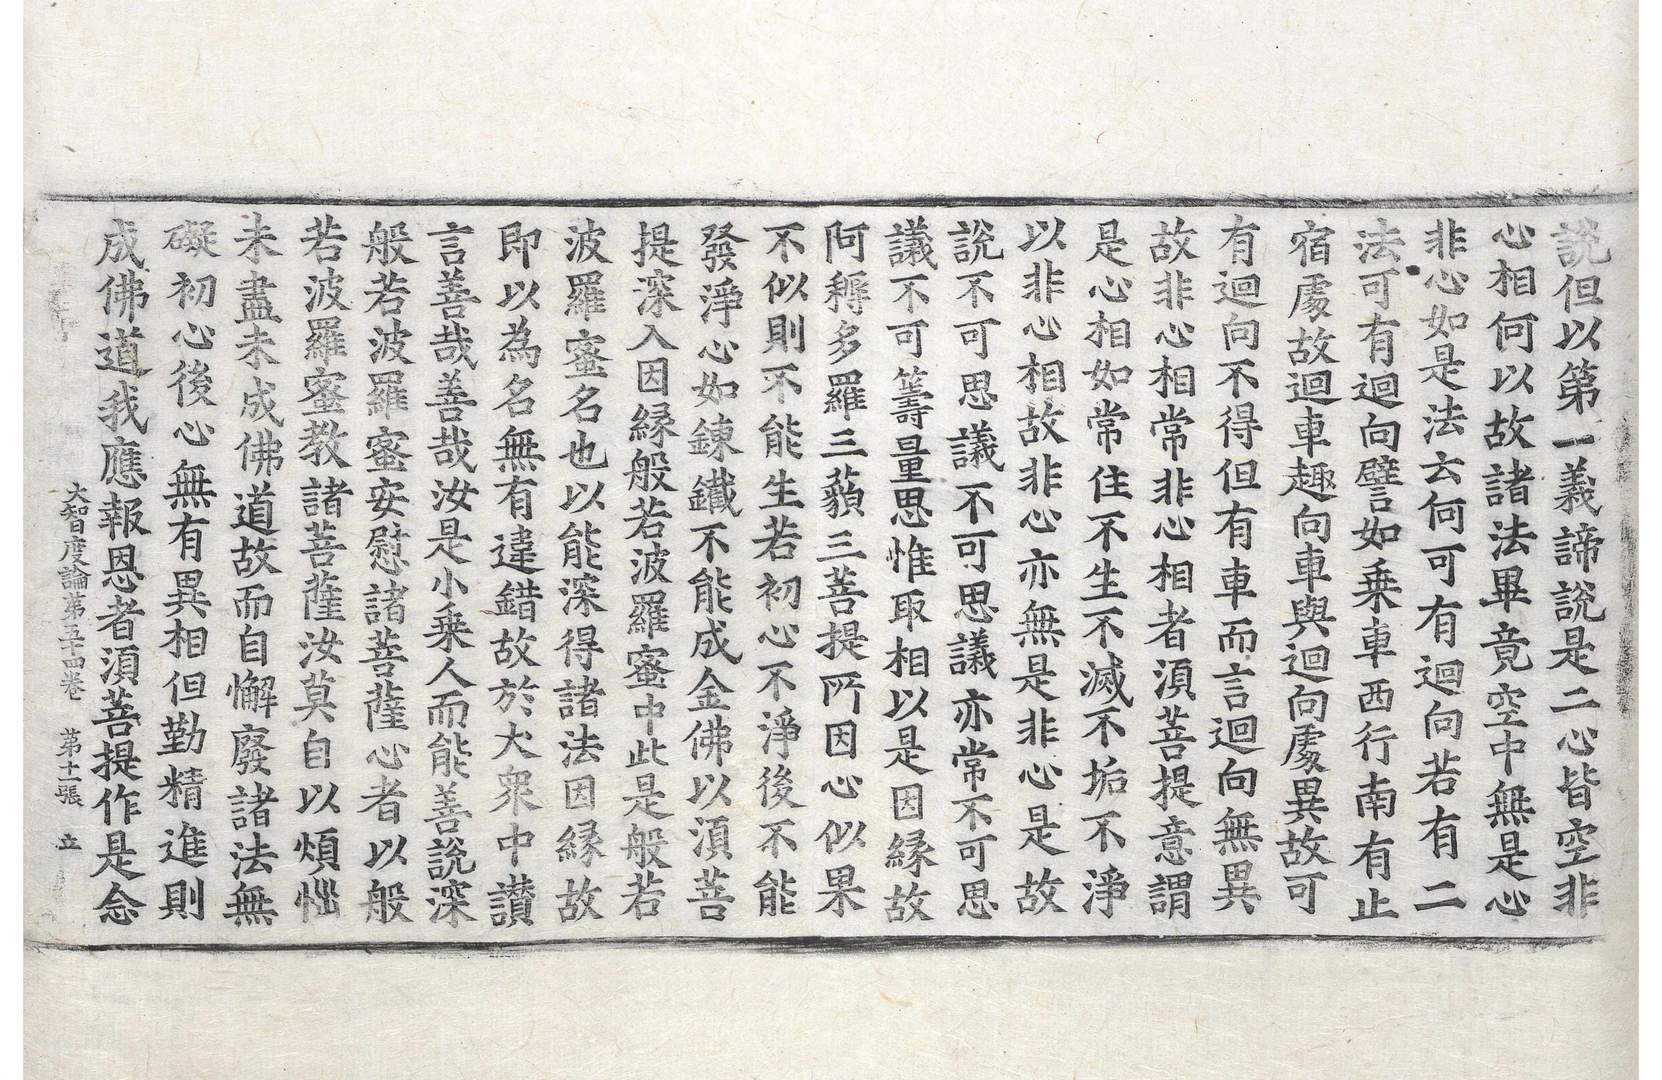 說但以第一義諦說是二心皆空非
心相何以故諸法畢竟空中無是心
非心如是法云何可有迴向若有二
法可有迴向譬如乘車西行南有止
宿處故迴車趣向車與迴向處異故可
有迴向不得但有車而言迴向無異
故非心相常非心相者須菩提意謂
是心相如常住不生不滅不垢不淨
以非心相故非心亦無是非心是故
說不可思議不可思議亦常不可思
議不可籌量思惟取相以是因緣故
阿耨多羅三藐三菩提所因心似果
不似則不能生若初心不淨後不能
發淨心如鍊鐵不能成金佛以須菩
提深入因緣般若波羅蜜中此是般若
波羅蜜名也以能深得諸法因緣故
即以為名無有違錯故於大衆中讃
言善哉善哉汝是小乘人而能善說深
般若波羅蜜安慰諸菩薩心者以般
若波羅蜜教諸菩薩汝莫自以煩惱
未盡未成佛道故而自懈廢諸法無
礙初心後心無有異相但勤精進則
成佛道我應報恩者須菩提作是念
大智度論第五十四卷 第十二張 立